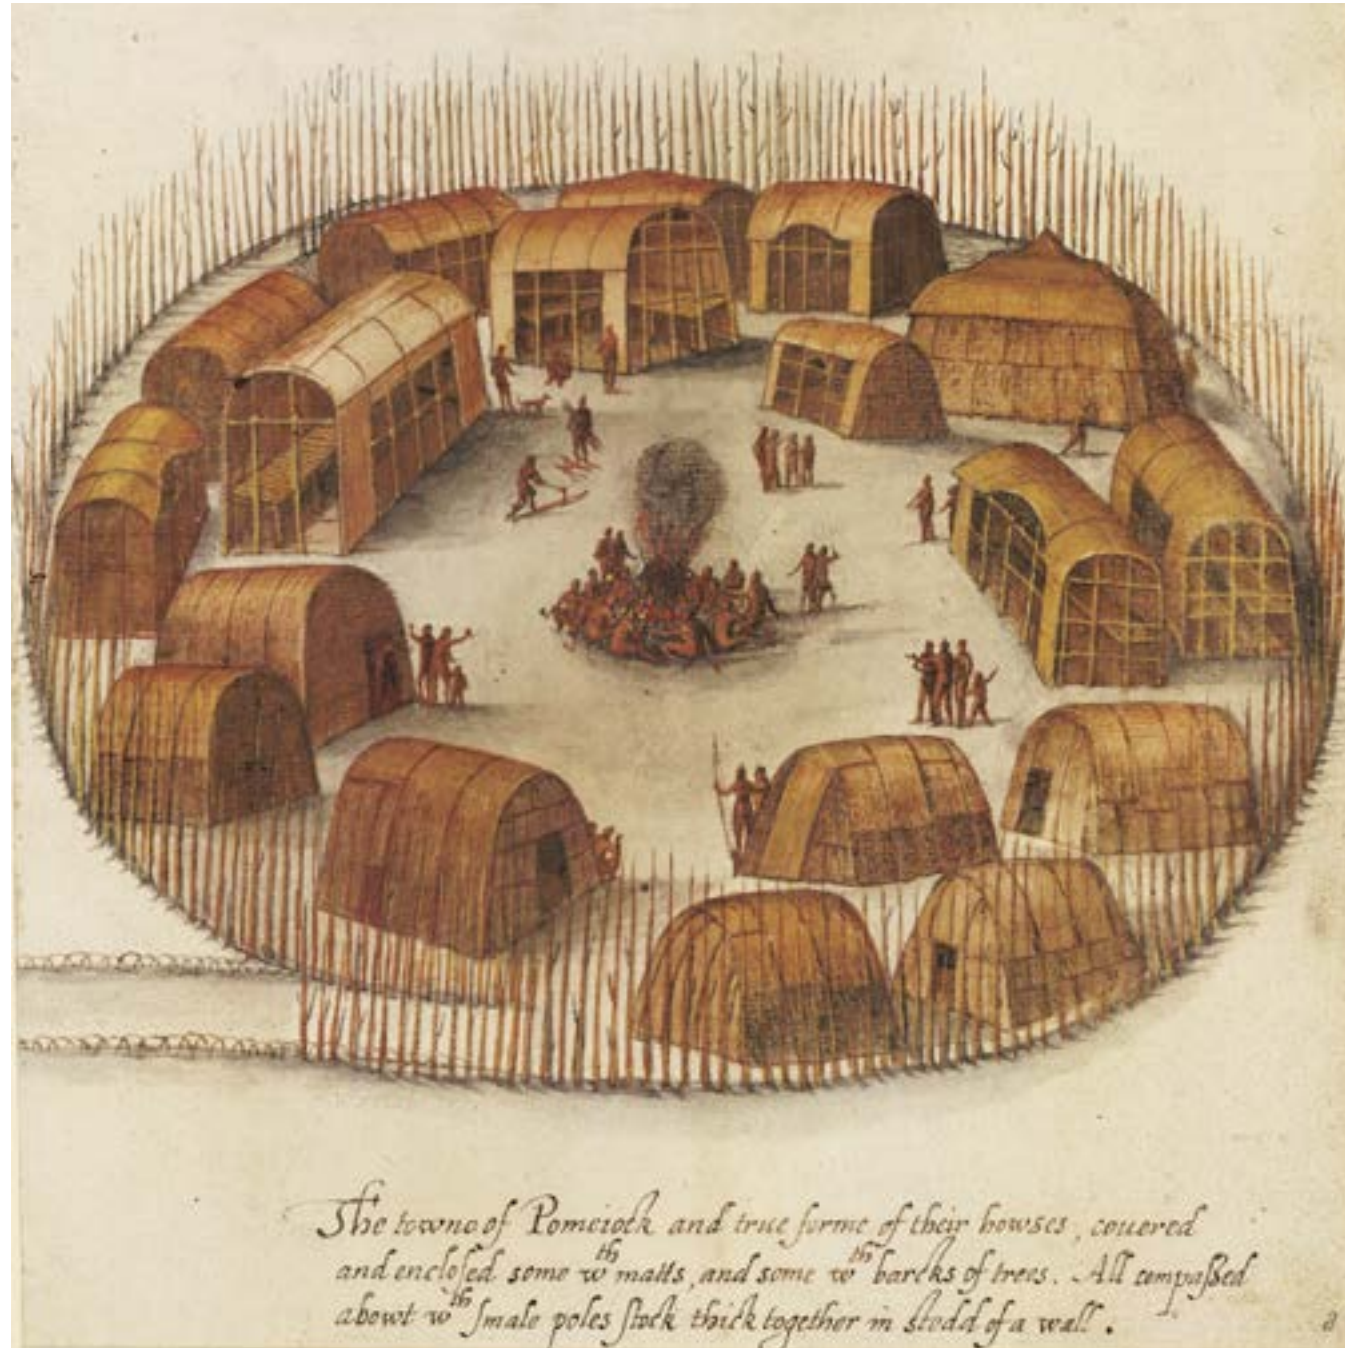 The towne of Pomeiock and true forme of their howses, couered
and enclosed some wth matts, and some wth barcks of trees. All compassed
abowt wth smale poles stock thick together in stedd of a wall.